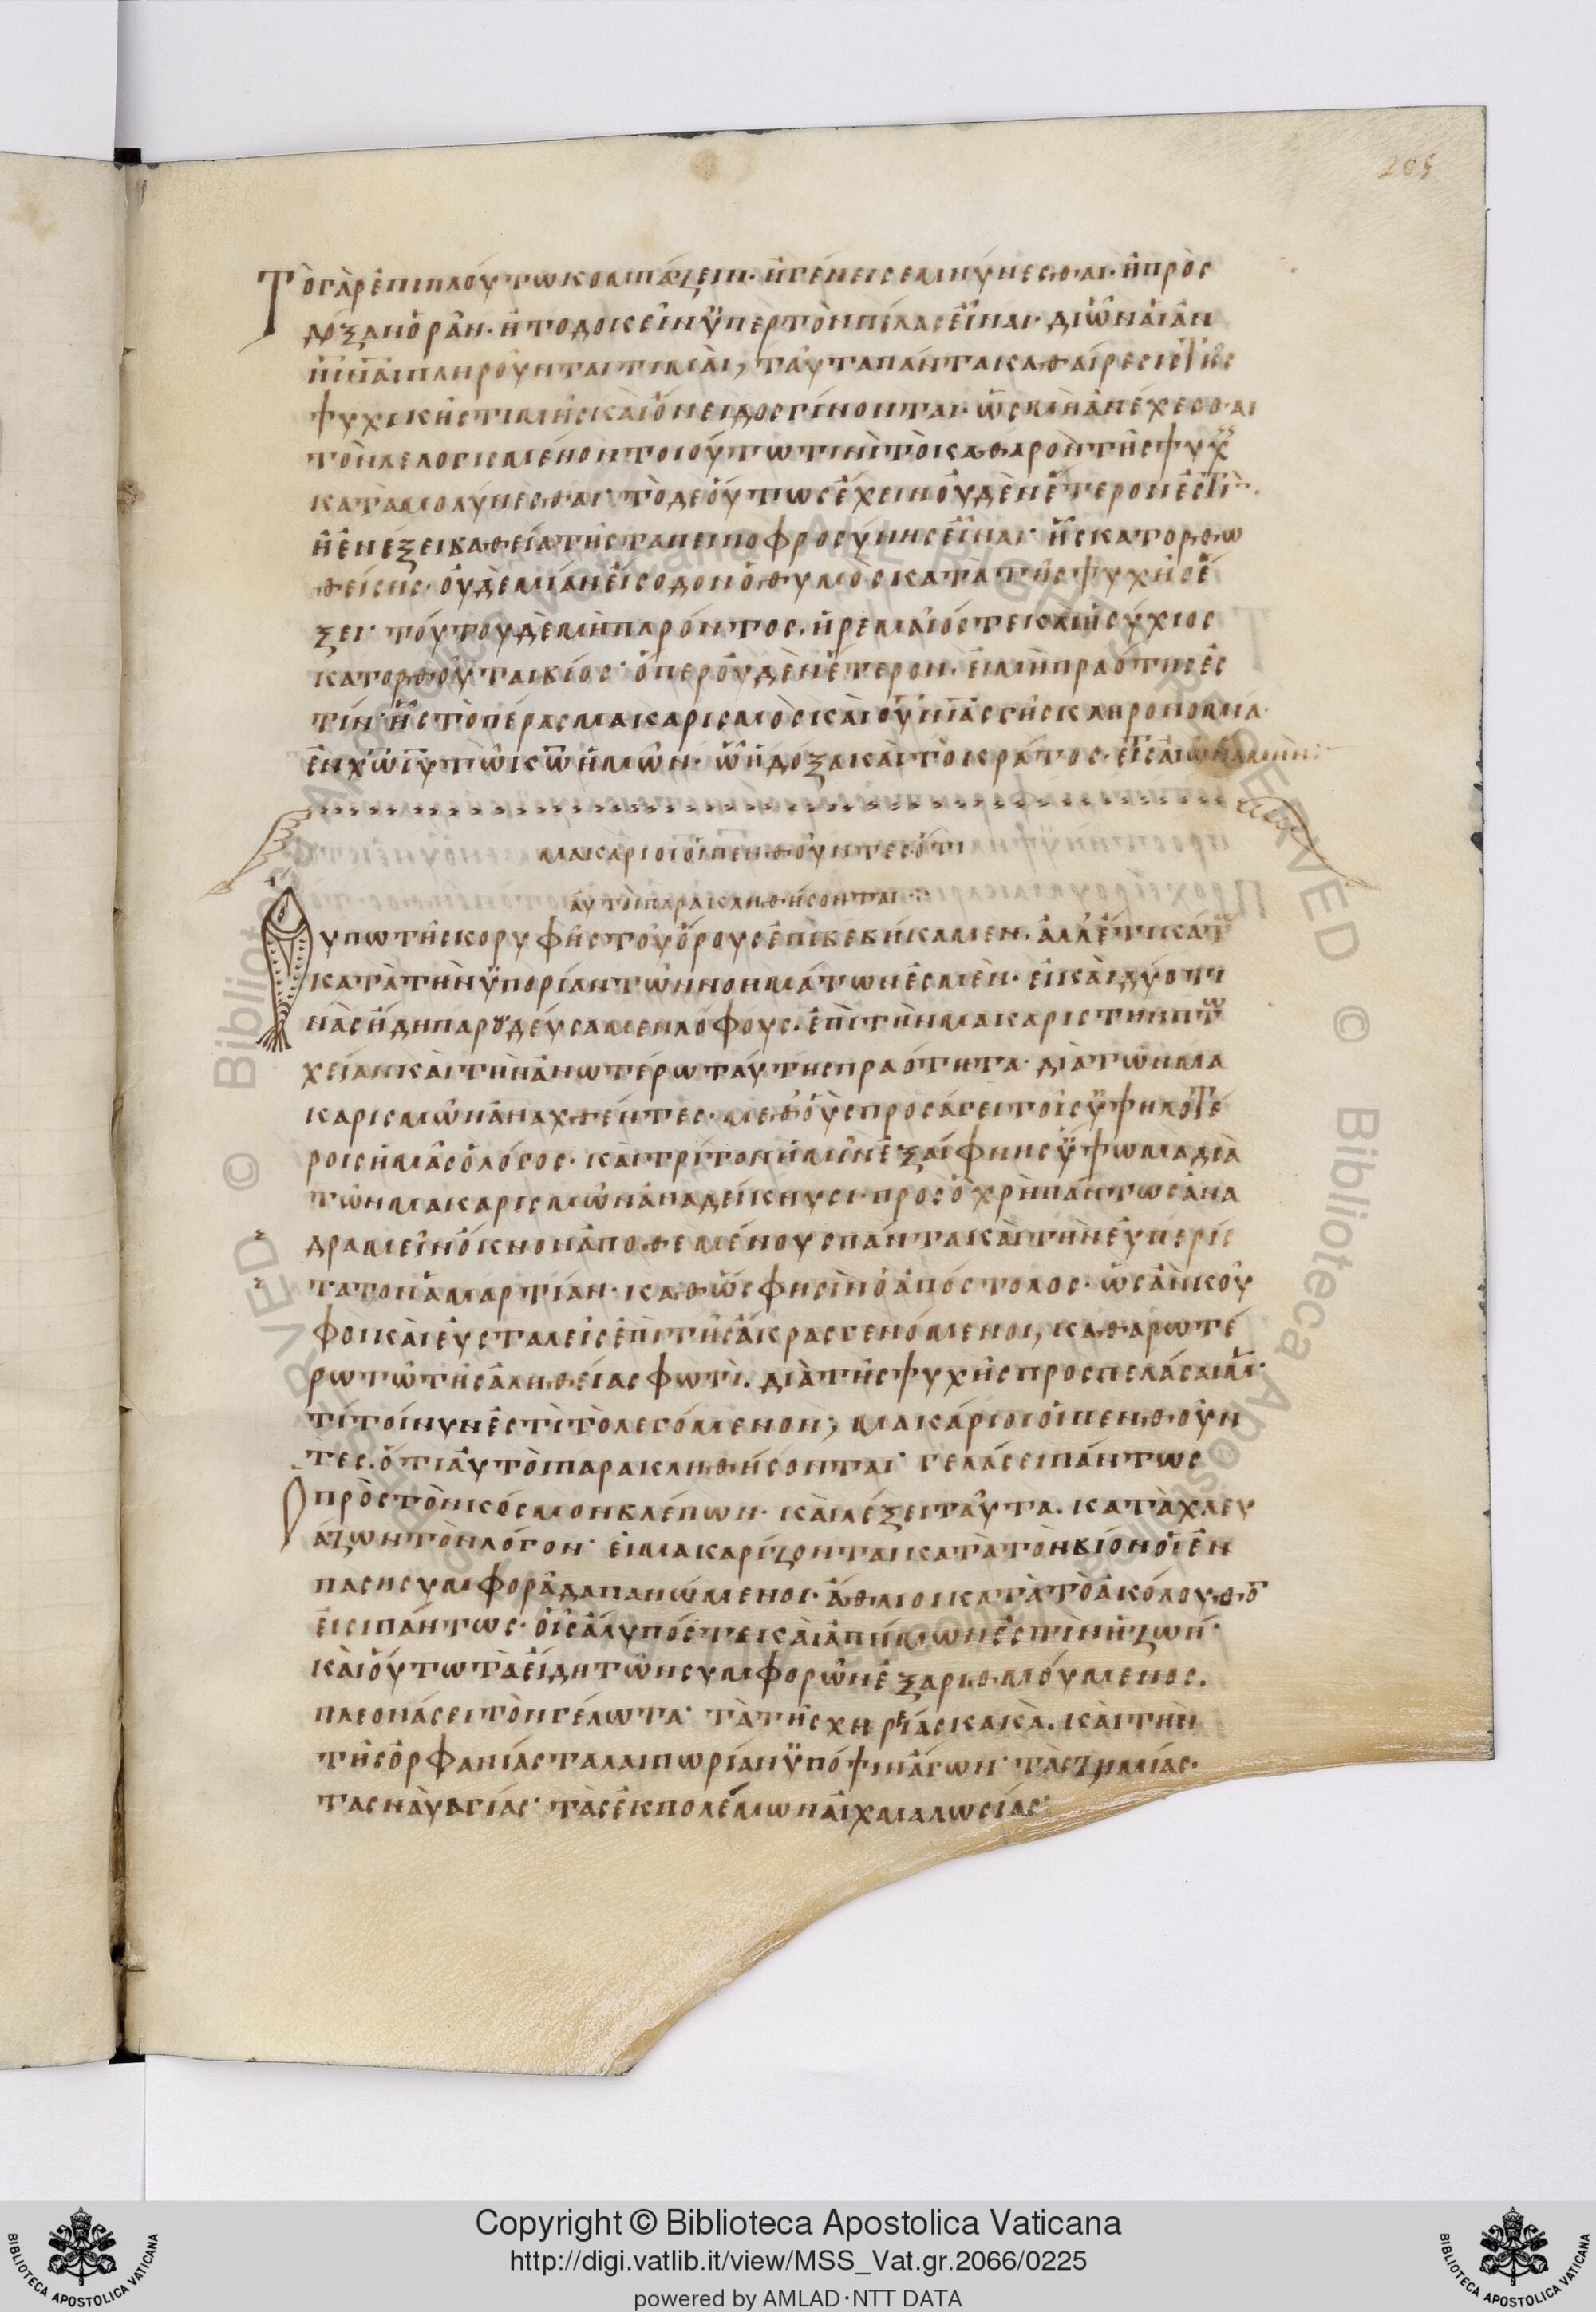 205
Τὸ γὰρ ἐπι πλούτω κομπάζειν· ἢ γένει σεμνύνεσθαι· ἢ πρὸς
δόξαν ὁρᾶν· ἢ το δοκεῖν ὑπερ τὸν πέλας εἶναι· δι ὧν αἱ ἀν
ιναι πληροῦνται τιμαὶ, ταῦτα πάντα καθαίρεσις τῆς
ψυχικῆς τιμῆς καὶ ὄνειδος γίνονται· ὡς μὴ ἀνέχεσθαι
τὸν λελογισμένον τοιούτω τινὶ τὸ καθαρὸν τῆς ψυχ
καταμολύνεσθαι· τὸ δε οὕτως ἔχειν οὐδὲν ἕτερον ἐστὶ·
ἢ ἐν ἕξει βαθεία τῆς ταπεινοφροσύνης εἶναι· ἧς κατορθω
θείσης· οὐδεμίαν εἴσοδον ὁ θυμὸς κατὰ τῆς ψυχῆς ἕ
ξει· τούτου δὲ μὴ παρόντος, ἠρεμαῖός τε καὶ ἡσύχιος
κατορθοῦται βίος· ὅπερ οὐδὲν ἕτερον, εἰ μὴ πραότης ἐς
τίν· ἧς τὸ πέρας μακαρισμὸς καὶ ουνιας γῆς κληρονομία·
ἐν χω ιυ τῶ κω ἡμῶν· ὧ ἡ δόξα καὶ τὸ κράτος· εἰς αἰῶνα ἀμήν:
μακάριοι οἱ πενθοῦντες· ὅτι
αὐτοὶ παρακληθήσονται:
Οὔπω τῆς κορυφῆς τοῦ ὄρους ἐπιβεβήκαμεν, ἀλλ ἔτι κάτ
κατὰ τὴν ὑπορίαν τῶν νοημάτων ἐσμὲν· εἰ καὶ δύο τι
νὰς ἤδη παρωδεύσαμεν λόφους, ἐπὶ τὴν μακαριστὴν πτω
χείαν καὶ τὴν ἀνωτέρω ταύτης πραότητα· διὰ τῶν μα
καρισμῶν ἀναχθέντες· μεθ οὓς προσάγει τοῖς ὑψηλοτέ
ροις ἡμᾶς ὁ λόγος· καὶ τρίτον ἡμῖν ἐξαίφνης ὕψωμα διὰ
τῶν μακαρισμῶν ἀναδείκνυσι· πρὸς ὃ χρὴ πάντως ἀνα
δραμεῖν ὄκνον ἀποθεμένους πάντα καὶ τὴν εὐπερίς
τατον ἁμαρτίαν· καθώς φησὶν ὁ ἀπόστολος· ὡς ἂν κοῦ
φοι καὶ εὐσταλεῖς ἐπὶ τῆς ἄκρας γενόμενοι, καθαρωτέ
ρω τῶ τῆς ἀληθείας φωτὶ, διὰ τῆς ψυχῆς προσπελάσαι
τί τοίνυν ἐστὶ τὸ λεγόμενον; μακάριοι οἱ πενθοῦν
τες, ὅτι αὐτοὶ παρακληθήσονται· γελάσει πάντως
Ὁ πρὸς τὸν κόσμον βλέπων· καὶ λέξει ταῦτα, καταχλευ
άζων τὸν λόγον· εἰ μακαρίζονται κατὰ τὸν βίον οἱ ἐν
πάση συμφορᾶ δαπανώμενοι· ἄθλιοι κατὰ τὸ ἀκόλουθο
εἰσι πάντως· οἷς ἄλυπός τε καὶ ἀπήμων ἐστὶν ἡ ζωή·
καὶ οὕτω τὰ εἴδη τῶν συμφορῶν ἐξαριθμούμενος,
πλεονάσει τὸν γέλωτα· τὰ τῆς χηρίας κακὰ, καὶ τὴν
τῆς ὀρφανίας ταλαιπωρίαν ὑπόψιν ἄγων· τὰς ζημίας·
τὰς ναυαγίας· τὰς ἐκ πολέμων αἰχμαλωσίας·
Copyright © Biblioteca Apostolica Vaticana
http://digi.vatlib.it/view/MSS_Vat.gr.2066/0225
powered by AMLAD·NTT DATA
BIBLIOTECA APOSTOLICA VATICANA
BIBLIOTECA APOSTOLICA VATICANA